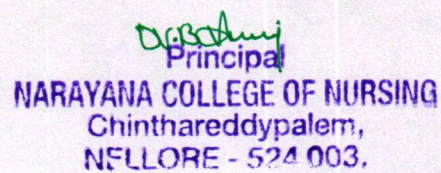 Principal
NARAYANA COLLEGE OF NURSING
Chinthareddypalem,
NELLORE - 524 003.